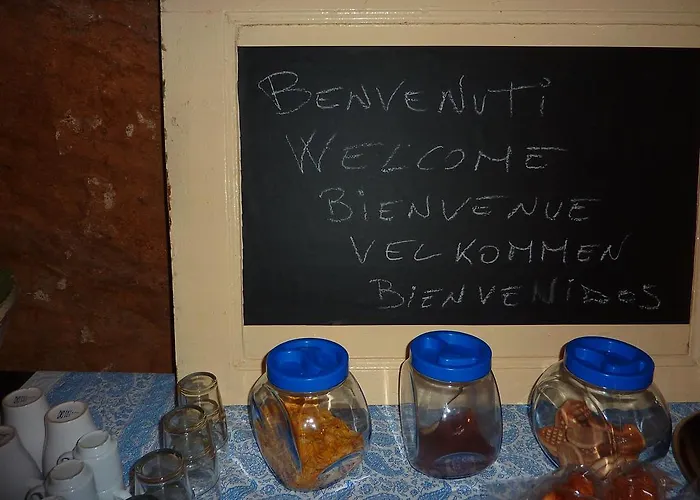 BENVENUTi
WELCOME
BiENVENUE
VELKOMMEN
BiENVENiDOS